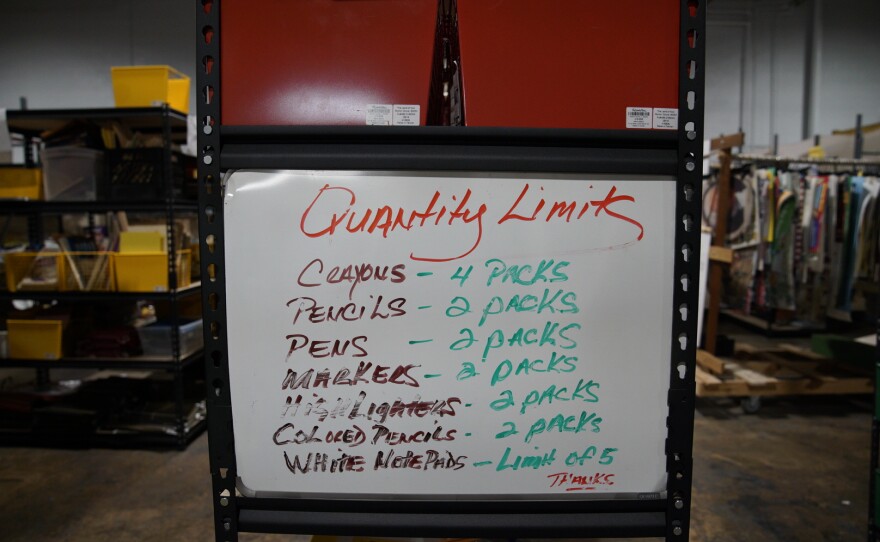 Quantity Limits
Crayons - 4 Packs
Pencils - 2 packs
Pens - 2 packs
Markers - 2 packs
Highlighters - 2 packs
Colored Pencils - 2 packs
White Notepads - Limit of 5
Thanks